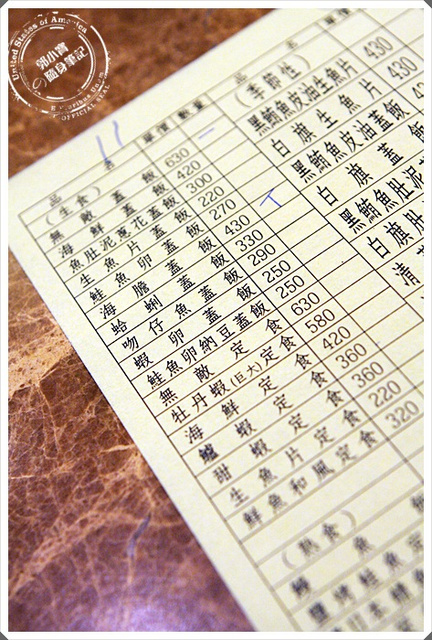 United States of America
邻小寶
の隨身筆記
OFFICIAL SEAL
11
品 名 單價 數量
(生食)
無敵蓋飯 630 一
海鮮蓋飯 420
魚肚泥蔥花蓋飯 300
生魚片蓋飯 220
鮭魚卵蓋飯 270 T
海膽蓋飯 430
蛤蜊蓋飯 330
吻仔魚蓋飯 290
蝦卵蓋飯 250
鮭魚卵納豆蓋飯 250
無敵定食 630
牡丹蝦(巨大)定食 580
海鮮定食 420
爐蝦定食 360
甜蝦定食 360
生魚片定食 220
鮮魚和風定食 320
(熱食)
品 名 單價
(季節性)
黑鮪魚皮油生魚片 430
白旗生魚片 430
黑鮪魚皮油蓋飯 430
白旗蓋飯
黑鮪魚肚泥
白旗肚
清